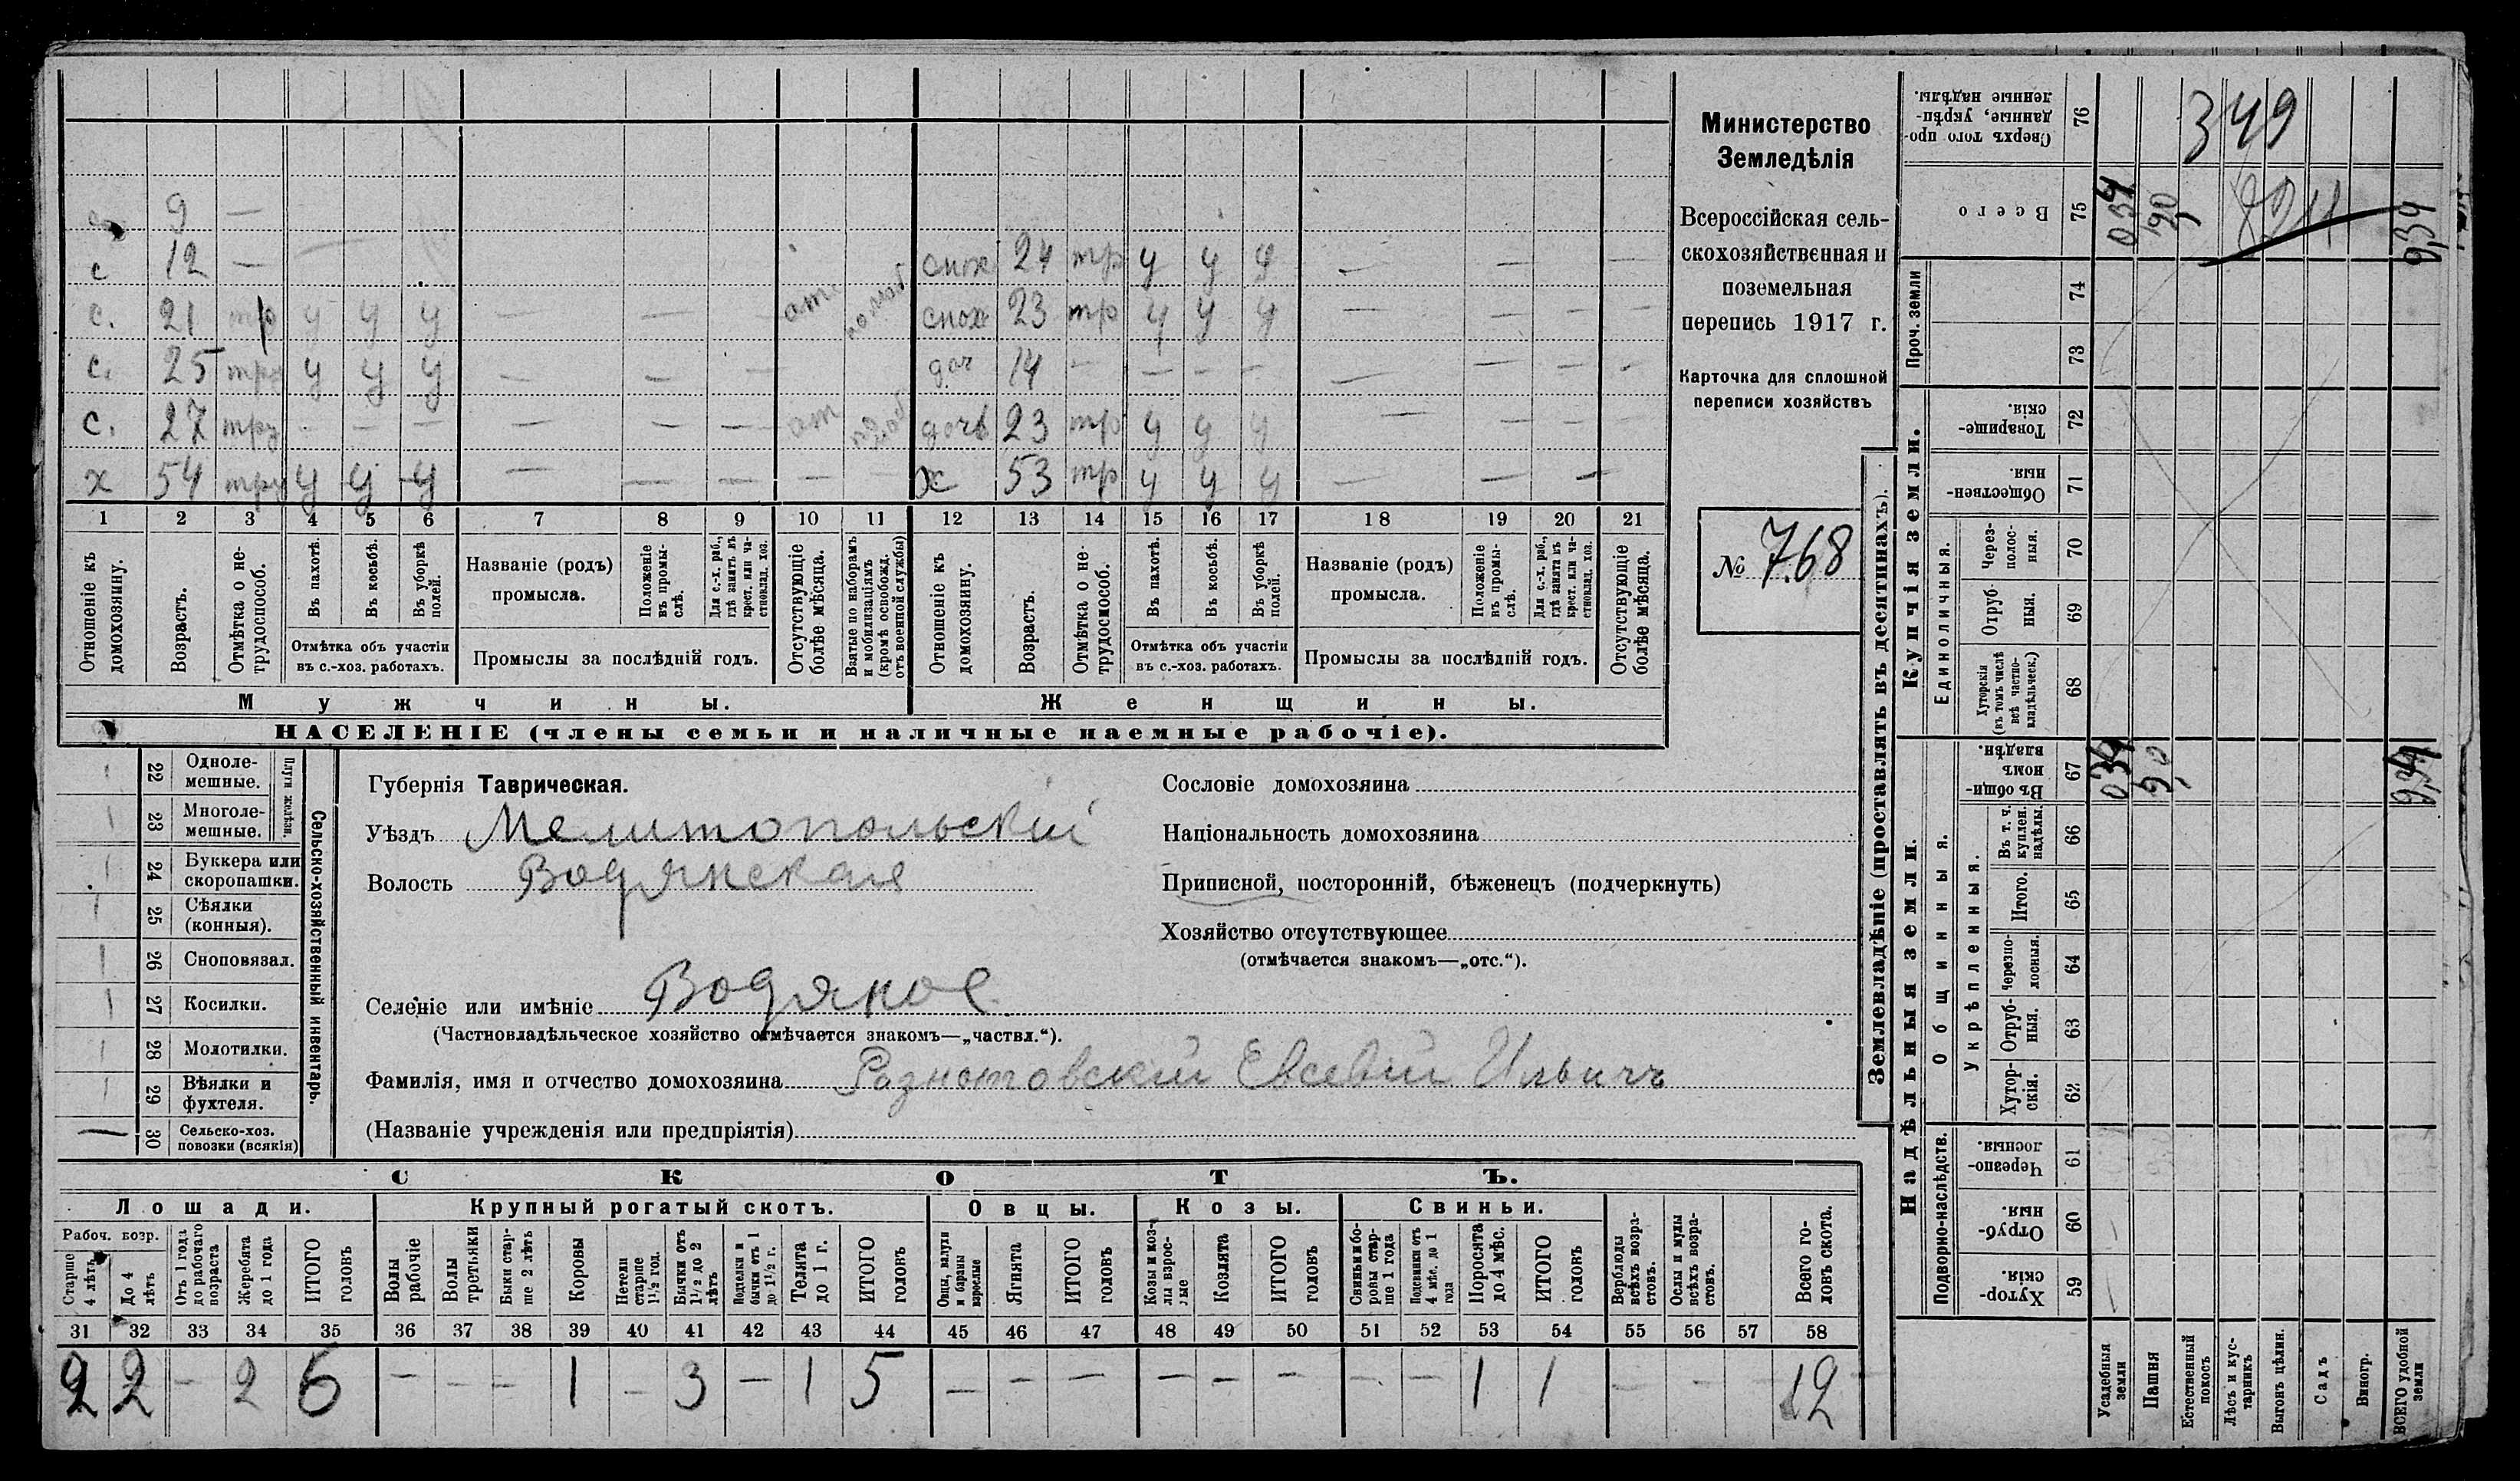 с 9 —
с 12 — снох 24 тр у у у — — —
с. 21 тр у у у — — — от. по моб снох 23 тр у у у — — — —
с. 25 тру у у у — — — доч 14 — — — — — — — -
с. 27 тру - — — — — — от моб дочь 23 тр у у у — — — —
х 54 тру у у у — — — — — х 53 тр у у у — — —
1 2 3 4 5 6 7 8 9 10 11 12 13 14 15 16 17 18 19 20 21
Отношеніе къ домохозяину.
Возрастъ.
Отмѣтка о не-трудоспособ.
Въ пахотѣ.
Въ косьбѣ.
Въ уборкѣ полей.
Отмѣтка объ участіи
въ с.-хоз. работахъ.
Названіе (родъ)
промысла.
Положеніе въ промы-слѣ.
Для с.-х. раб., гдѣ занятъ въ крест. или ча-стновлад. хоз.
Промыслы за послѣдній годъ.
Отсутствующіе болѣе мѣсяца.
Взятые по наборамъ и мобилизаціямъ (кромѣ освобожд. отъ военной службы)
Отношеніе къ домохозяину.
Возрастъ.
Отмѣтка о не-трудоспособ.
Въ пахотѣ.
Въ косьбѣ.
Въ уборкѣ полей.
Отмѣтка объ участіи
въ с.-хоз. работахъ.
Названіе (родъ)
промысла.
Положеніе въ промы-слѣ.
Для с.-х. раб., гдѣ занята въ крест. или ча-стновлад. хоз.
Промыслы за послѣдній годъ.
Отсутствующіе болѣе мѣсяца.
Мужчины.
Женщины.
НАСЕЛЕНІЕ (члены семьи и наличные наемные рабочіе).
Министерство
Земледѣлія
Всероссійская сель-
скохозяйственная и
поземельная
перепись 1917 г.
Карточка для сплошной
переписи хозяйствъ
№ 768
22 Одноле-мешные.
23 Многоле-мешные.
Плуги желѣзн.
24 Буккера или скоропашки.
25 Сѣялки (конныя).
26 Сноповязал.
27 Косилки.
28 Молотилки.
29 Вѣялки и фухтеля.
30 Сельско-хоз. повозки (всякія)
Сельско-хозяйственный инвентарь.
Губернія Таврическая.
Уѣздъ Мелитопольскій
Волость Водянская
Селеніе или имѣніе Водяное
(Частновладѣльческое хозяйство отмѣчается знакомъ—„частвл.“).
Фамилія, имя и отчество домохозяина Разнотовскій Евсевій Ильичъ
(Названіе учрежденія или предпріятія)
Сословіе домохозяина
Національность домохозяина
Приписной, посторонній, бѣженецъ (подчеркнуть)
Хозяйство отсутствующее
(отмѣчается знакомъ—„отс.“).
СКОТЪ.
Лошади. Крупный рогатый скотъ. Овцы. Козы. Свиньи.
Рабоч. возр.
Старше 4 лѣтъ
До 4 лѣтъ
Отъ 1 года до рабочаго возраста
Жеребята до 1 года
ИТОГО головъ
Волы рабочіе
Волы третьяки
Быки стар-ше 2 лѣтъ
Коровы
Нетели старше 1½ год.
Бычки отъ 1½ до 2 лѣтъ
Подтелки и бычки отъ 1 до 1½ г.
Телята до 1 г.
ИТОГО головъ
Овцы, валухи и бараны взрослые
Ягнята
ИТОГО головъ
Козы и коз-лы взрос-лые
Козлята
ИТОГО головъ
Свиньи и бо-ровы стар-ше 1 года
Подсвинки отъ 4 мѣс. до 1 года
Поросята до 4 мѣс.
ИТОГО головъ
Верблюды всѣхъ возра-стовъ.
Ослы и мулы всѣхъ возра-стовъ.
Всего го-ловъ скота.
31 32 33 34 35 36 37 38 39 40 41 42 43 44 45 46 47 48 49 50 51 52 53 54 55 56 57 58
2 2 — 2 6 — — — 1 — 3 — 1 5 — — — — — — — — 1 1 — — 12
Землевладѣніе (проставлять въ десятинахъ).
Сверхъ того про-данные, укрѣп-ленные надѣлы. 76 349
Всего 75 034 9,0 9,34
Купчія земли.
Проч. земли 74
73
Товарище-скія. 72
Обществен-ныя 71
Единоличныя.
Через-полос-ныя. 70
Отруб-ныя. 69
Хуторскія (въ томъ числѣ всѣ частно-владѣльческ.) 68
Надѣльныя земли.
Общинныя.
Въ общи-номъ владѣн. 67 034 9,0 9,34
Укрѣпленныя.
Въ т. ч. куплен. надѣлы. 66
Итого. 65
Черезпо-лосныя. 64
Отруб-ныя. 63
Хутор-скія. 62
Подворно-наслѣдств.
Черезпо-лосныя. 61
Отруб-ныя. 60
Хутор-скія. 59
Усадебныя земли
Пашня
Естественный покосъ
Лѣсъ и кус-тарникъ
Выгонъ цѣлин.
Садъ
Виногр.
ВСЕГО удобной земли